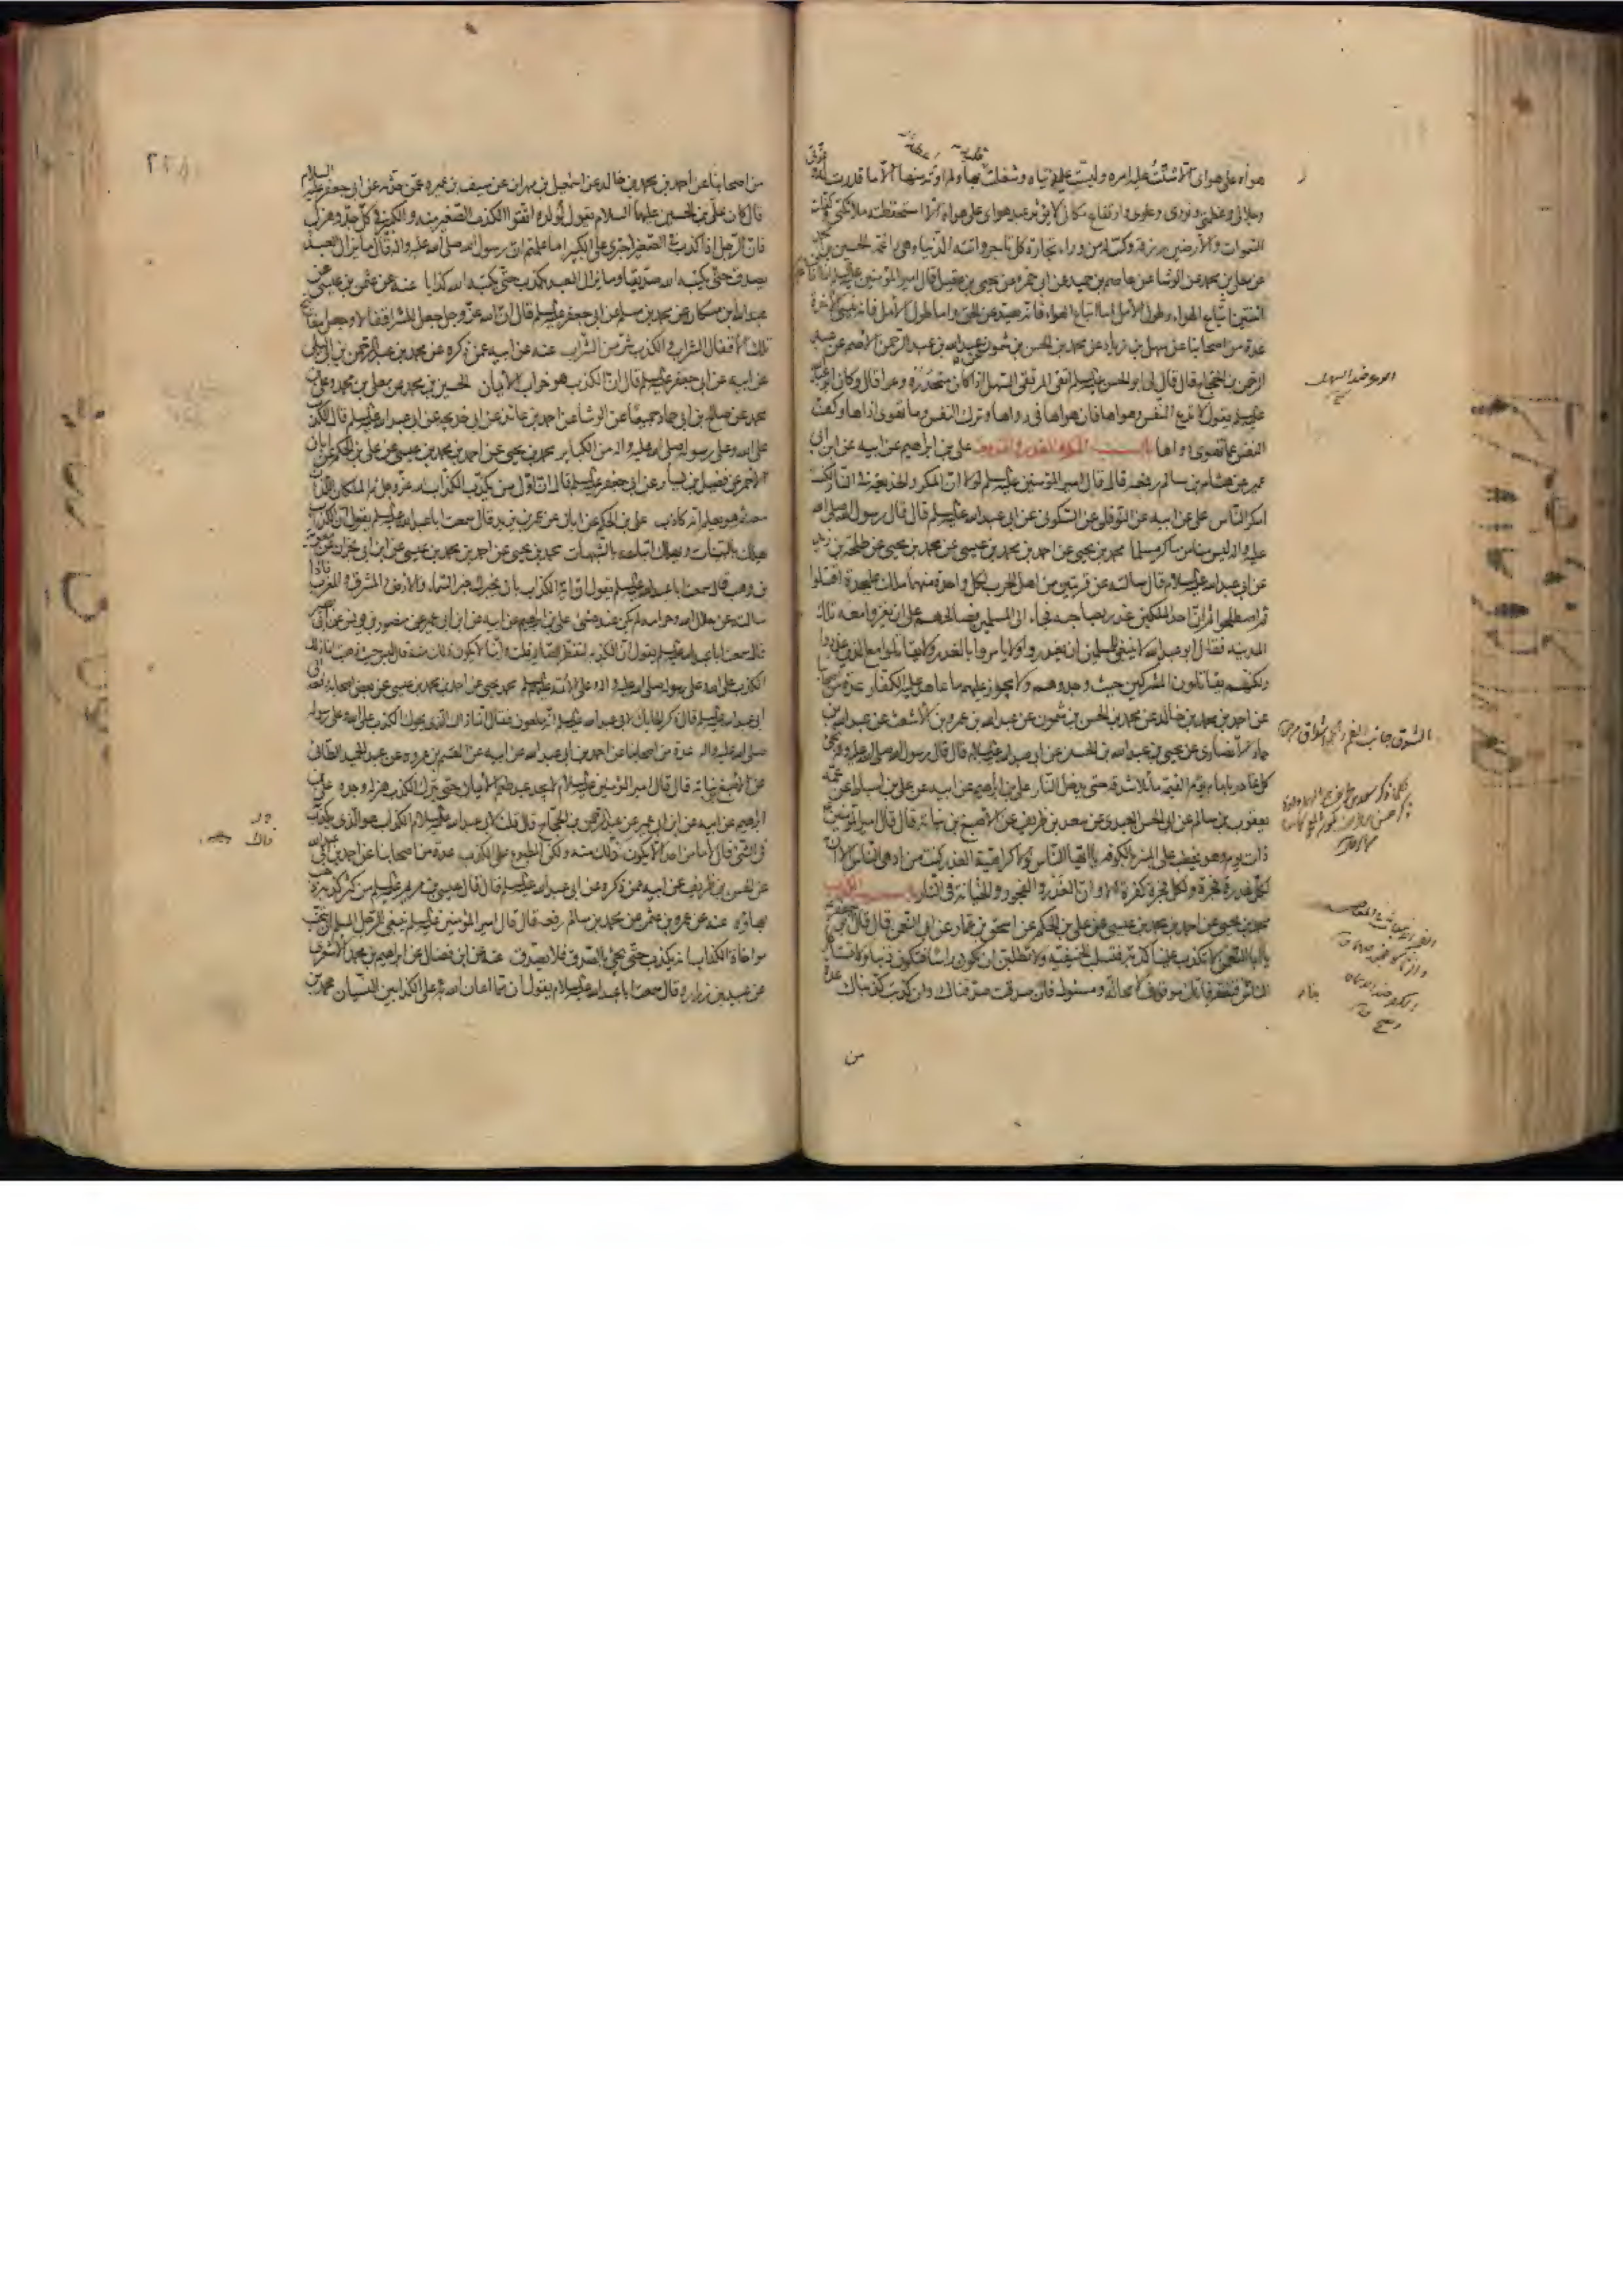 هواه على هواي الا شتت عليه امره ولبست عليه دنياه وشغلت قلبه بها ولم اوته منها الا ما قدرت له وعزتي
وجلالي وعظمتي ونوري وعلوي وارتفاع مكاني لا يؤثر عبد هواي على هواه الا استحفظته ملائكتي وكفلت
السموات والارضين رزقه وكنت له من وراء تجارة كل تاجر واتته الدنيا وهي راغمة الحسين بن محمد
عن معلى بن محمد عن الوشا عن عاصم بن حميد عن ابي حمزة عن يحيى بن عقيل قال قال امير المؤمنين عليه السلم انما اخاف عليكم
اثنتين اتباع الهواء وطول الامل اما اتباع الهواء فانه يصد عن الحق واما طول الامل فانه ينسي الاخرة
عدة من اصحابنا عن سهل بن زياد عن محمد بن الحسن بن شمون عن عبد الله بن عبد الرحمن الاصم عن عبد
الرحمن بن الحجاج قال قال لي ابو الحسن عليه السلم اتق المرتقى السهل اذا كان منحدره وعرا قال وكان ابو عبد الله
عليه السلم يقول لا تدع النفس وهواها فان هواها في رداها وترك النفس وما تهوى اذاها وكف
النفس عما تهوى دواها باب المكر والغدر والخديعة علي بن ابراهيم عن ابيه عن ابن ابي
عمير عن هشام بن سالم رفعه قال قال امير المؤمنين عليه السلم لولا ان المكر والخديعة في النار لكنت
امكر الناس علي عن ابيه عن النوفلي عن السكوني عن ابي عبد الله عليه السلم قال قال رسول الله صلى الله
عليه واله ليس منا من ماكر مسلما محمد بن يحيى عن احمد بن محمد بن عيسى عن محمد بن يحيى عن طلحة بن زيد
عن ابي عبد الله عليه السلام قال سالته عن قريتين من اهل الحرب لكل واحدة منهما ملك على حدة اقتتلوا
ثم اصطلحوا ثم ان احد الملكين غدر بصاحبه فجاء الى المسلمين فصالحهم على ان يغزوا معه تلك
المدينة فقال ابو عبد الله لا ينبغي للمسلمين ان يغدروا ولا يامروا بالغدر ولا يقاتلوا مع الذين غدروا
ولكنهم يقاتلون المشركين حيث وجدوهم ولا يجوز عليهم ما عاهد عليه الكفار عدة من اصحابنا
عن احمد بن محمد بن خالد عن محمد بن الحسن بن شمون عن عبد الله بن عمرو بن الاشعث عن عبد الله بن
حماد الانصاري عن يحيى بن عبد الله بن الحسن عن ابي عبد الله عليه السلم قال قال رسول الله صلى الله عليه واله يجئ
كل غادر بامام يوم القيمة مائلا شدقه حتى يدخل النار علي بن ابراهيم عن ابيه عن علي بن اسباط عن عمه
يعقوب بن سالم عن ابي الحسن العبدي عن سعد بن طريف عن الاصبغ بن نباتة قال قال امير المؤمنين
ذات يوم وهو يخطب على المنبر بالكوفة يا ايها الناس لولا كراهية الغدر كنت من ادهى الناس الا ان
لكل غدرة فجرة ولكل فجرة كفرة الا وان الغدر والفجور والخيانة في النار باب الكذب
محمد بن يحيى عن احمد بن محمد بن عيسى عن علي بن الحكم عن اسحق بن عمار عن ابي النعمن قال قال ابو جعفر
يا ابا النعمن لا تكذب علينا كذبة فتسلب الحنيفية ولا تطلبن ان تكون راسا فتكون ذنبا ولا تستاكل
الناس فتفتقر فانك موقوف لا محالة ومسئول فان صدقت صدقناك وان كذبت كذبناك عدة
من
من اصحابنا عن احمد بن محمد بن خالد عن اسمعيل بن مهران عن سيف بن عميرة عمن حدثه عن ابي جعفر عليه السلام
قال كان علي بن الحسين عليهما السلام يقول لولده اتقوا الكذب الصغير منه والكبير في كل جد وهزل
فان الرجل اذا كذب في الصغير اجترى على الكبير اما علمتم ان رسول الله صلى الله عليه واله قال ما يزال العبد
يصدق حتى يكتبه الله صديقا وما يزال العبد يكذب حتى يكتبه الله كذابا عنه عن عثمن بن عيسى عن
عبد الله بن مسكان عن محمد بن مسلم عن ابي جعفر عليه السلم قال ان الله عز وجل جعل للشر اقفالا وجعل مفاتيح
تلك الاقفال الشراب والكذب شر من الشراب عنه عن ابيه عمن ذكره عن محمد بن عبد الرحمن بن ابي ليلى
عن ابيه عن ابي جعفر عليه السلم قال ان الكذب هو خراب الايمان الحسين بن محمد عن معلى بن محمد وعلي بن
محمد عن صالح بن ابي حماد جميعا عن الوشا عن احمد بن عائذ عن ابي خديجة عن ابي عبد الله عليه السلم قال الكذب
على الله وعلى رسوله صلى الله عليه واله من الكبائر محمد بن يحيى عن احمد بن محمد بن عيسى عن علي بن الحكم عن ابان
الاحمر عن فضيل بن يسار عن ابي جعفر عليه السلم قال ان اول من يكذب الكذاب الله عز وجل ثم الملكان اللذان
معه ثم هو يعلم انه كاذب علي بن الحكم عن ابان عن عمر بن يزيد قال سمعت ابا عبد الله عليه السلم يقول ان الكذاب
يهلك بالبينات ويهلك اتباعه بالشبهات محمد بن يحيى عن احمد بن محمد بن عيسى عن ابن ابي نجران عن معوية
بن وهب قال سمعت ابا عبد الله عليه السلم يقول ان اية الكذاب بان يخبرك خبر السماء والارض والمشرق والمغرب فاذا
سالته عن حلال الله وحرامه لم يكن عنده شئ علي بن ابراهيم عن ابيه عن ابن ابي عمير عن منصور بن يونس عن ابي بصير
قال سمعت ابا عبد الله عليه السلم يقول ان الكذبة لتفطر الصائم قلت واينا لا يكون ذلك منه قال ليس حيث ذهبت انما ذلك
الكذب على الله وعلى رسوله صلى الله عليه واله وعلى الائمة عليهم السلم محمد بن يحيى عن احمد بن محمد بن عيسى عن بعض اصحابه رفعه الى
ابي عبد الله عليه السلم قال ذكر الحائك لابي عبد الله عليه السلم انه ملعون فقال انما ذاك الذي يحوك الكذب على الله وعلى رسوله
صلى الله عليه واله عدة من اصحابنا عن احمد بن ابي عبد الله عن ابيه عن القسم بن عروة عن عبد الحميد الطائي
عن الاصبغ بن نباتة قال قال امير المؤمنين عليه السلام لا يجد عبد طعم الايمان حتى يترك الكذب هزله وجده علي بن
ابراهيم عن ابيه عن ابن ابي عمير عن عبد الرحمن بن الحجاج قال قلت لابي عبد الله عليه السلام الكذاب هو الذي يكذب
في الشئ قال لا ما من احد الا يكون ذلك منه ولكن المطبوع على الكذب عدة من اصحابنا عن احمد بن ابي عبد الله
عن الحسن بن ظريف عن ابيه عمن ذكره عن ابي عبد الله عليه السلم قال قال عيسى بن مريم عليه السلم من كثر كذبه ذهب
بهاؤه عنه عن عمرو بن عثمن عن محمد بن سالم رفعه قال قال امير المؤمنين عليه السلم ينبغي للرجل المسلم ان يجتنب
مواخاة الكذاب انه يكذب حتى يجئ بالصدق فلا يصدق عنه عن ابن فضال عن ابراهيم بن محمد الاشعري
عن عبيد بن زرارة قال سمعت ابا عبد الله عليه السلام يقول ان مما اعان الله به على الكذابين النسيان محمد بن